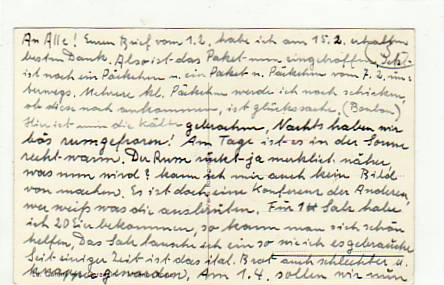 An Alle! Euren Brief vom 1.2. habe ich am 15.2. erhalten
besten Dank. Also ist das Paket nun eingetroffen, Jetzt
ist noch ein Päckchen u. ein Paket u. Päckchen vom 7.2. un-
terwegs. Mehrere kl. Päckchen werde ich noch schicken,
ob diese noch ankommen, ist glückssache, (Bonbon)
Hier ist nun die Kälte gebrochen, Nachts haben wir
bös rumgefroren! Am Tage ist es in der Sonne
recht warm. Der Russ rückt ja merklich näher,
was nun wird? kann ich mir auch kein Bild
von machen. Es ist doch eine Konferenz der Anderen,
wer weiß was die ausbrüten. Für 1 Salz habe
ich 20 Eier bekommen, so kann man sich schön
helfen, Das Salz tausche ich ein so wie ich es gebrauche
Seit einiger Zeit ist das ital. Brot auch schlechter u.
knapper geworden, Am 1.4. sollen wir nun